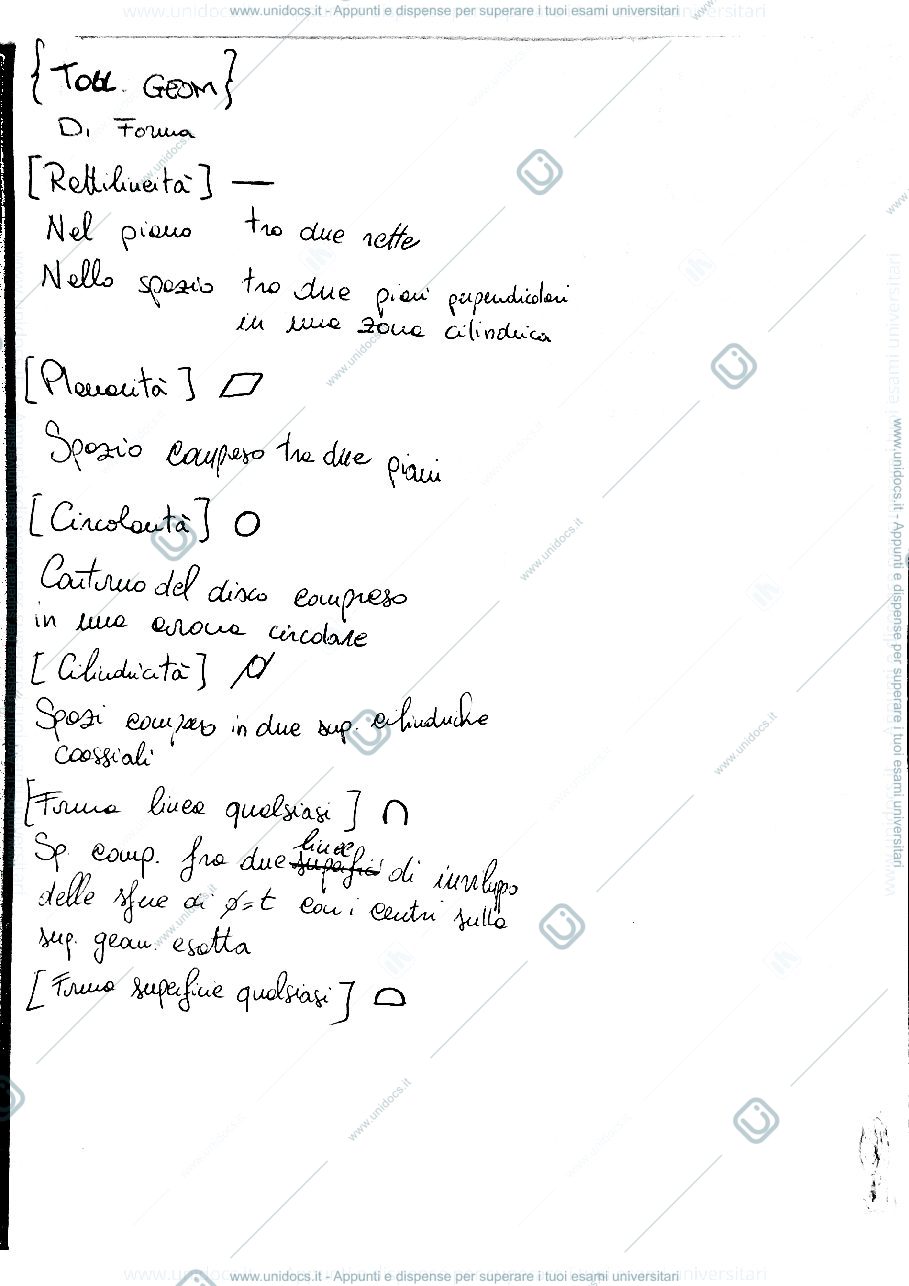 www.unidocs.it - Appunti e dispense per superare i tuoi esami universitari
{Toll. GEOM}
Di Forma
[Rettilineità] —
Nel piano tra due rette
Nello spazio tra due piani perpendicolari
in una zona cilindrica
[Planarità] ▱
Spazio compreso tra due piani
[Circolarità] ○
Contorno del disco compreso
in una corona circolare
[Cilindricità] ⌭
Spazi compreso in due sup. cilindriche
coassiali
[Forma linea qualsiasi] ⌒
Sp comp. fra due linee superfici di inviluppo
delle sfere di ø=t con i centri sulla
sup. geom. esatta
[Forma superficie qualsiasi] ⌓
www.unidocs.it - Appunti e dispense per superare i tuoi esami universitari
www.unidocs.it - Appunti e dispense per superare i tuoi esami universitari